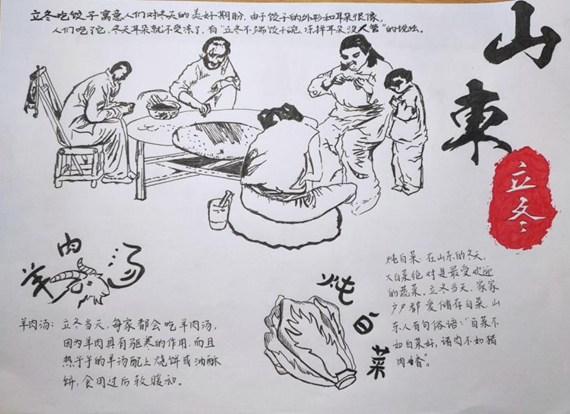 立冬吃饺子寓意人们对冬天的美好期盼,由于饺子的外形和耳朵很像,
人们吃了它,冬天耳朵就不受冻了,有“立冬不端饺子碗,冻掉耳朵没人管”的说法。
山
東
立冬
羊肉汤
羊肉汤:立冬当天,每家都会吃羊肉汤,
因为羊肉具有驱寒的作用,而且
热乎乎的羊汤配上烧饼或油酥
饼,食用过后较暖和。
炖白菜
炖白菜:在山东的冬天,
大白菜绝对是最受欢迎
的蔬菜,立冬当天,家家
户户都爱储存白菜,山
东人有句俗语:“百菜不
如白菜好,诸肉不如猪
肉香”。